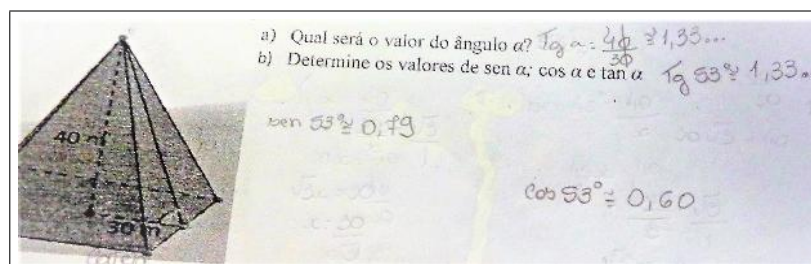 a) Qual será o valor do ângulo α? Tg α = 40/30 ≅ 1,33...
b) Determine os valores de sen α; cos α e tan α Tg 53° ≅ 1,33..
sen 53° ≅ 0,79
40 m
cos 53° ≅ 0,60
30 m